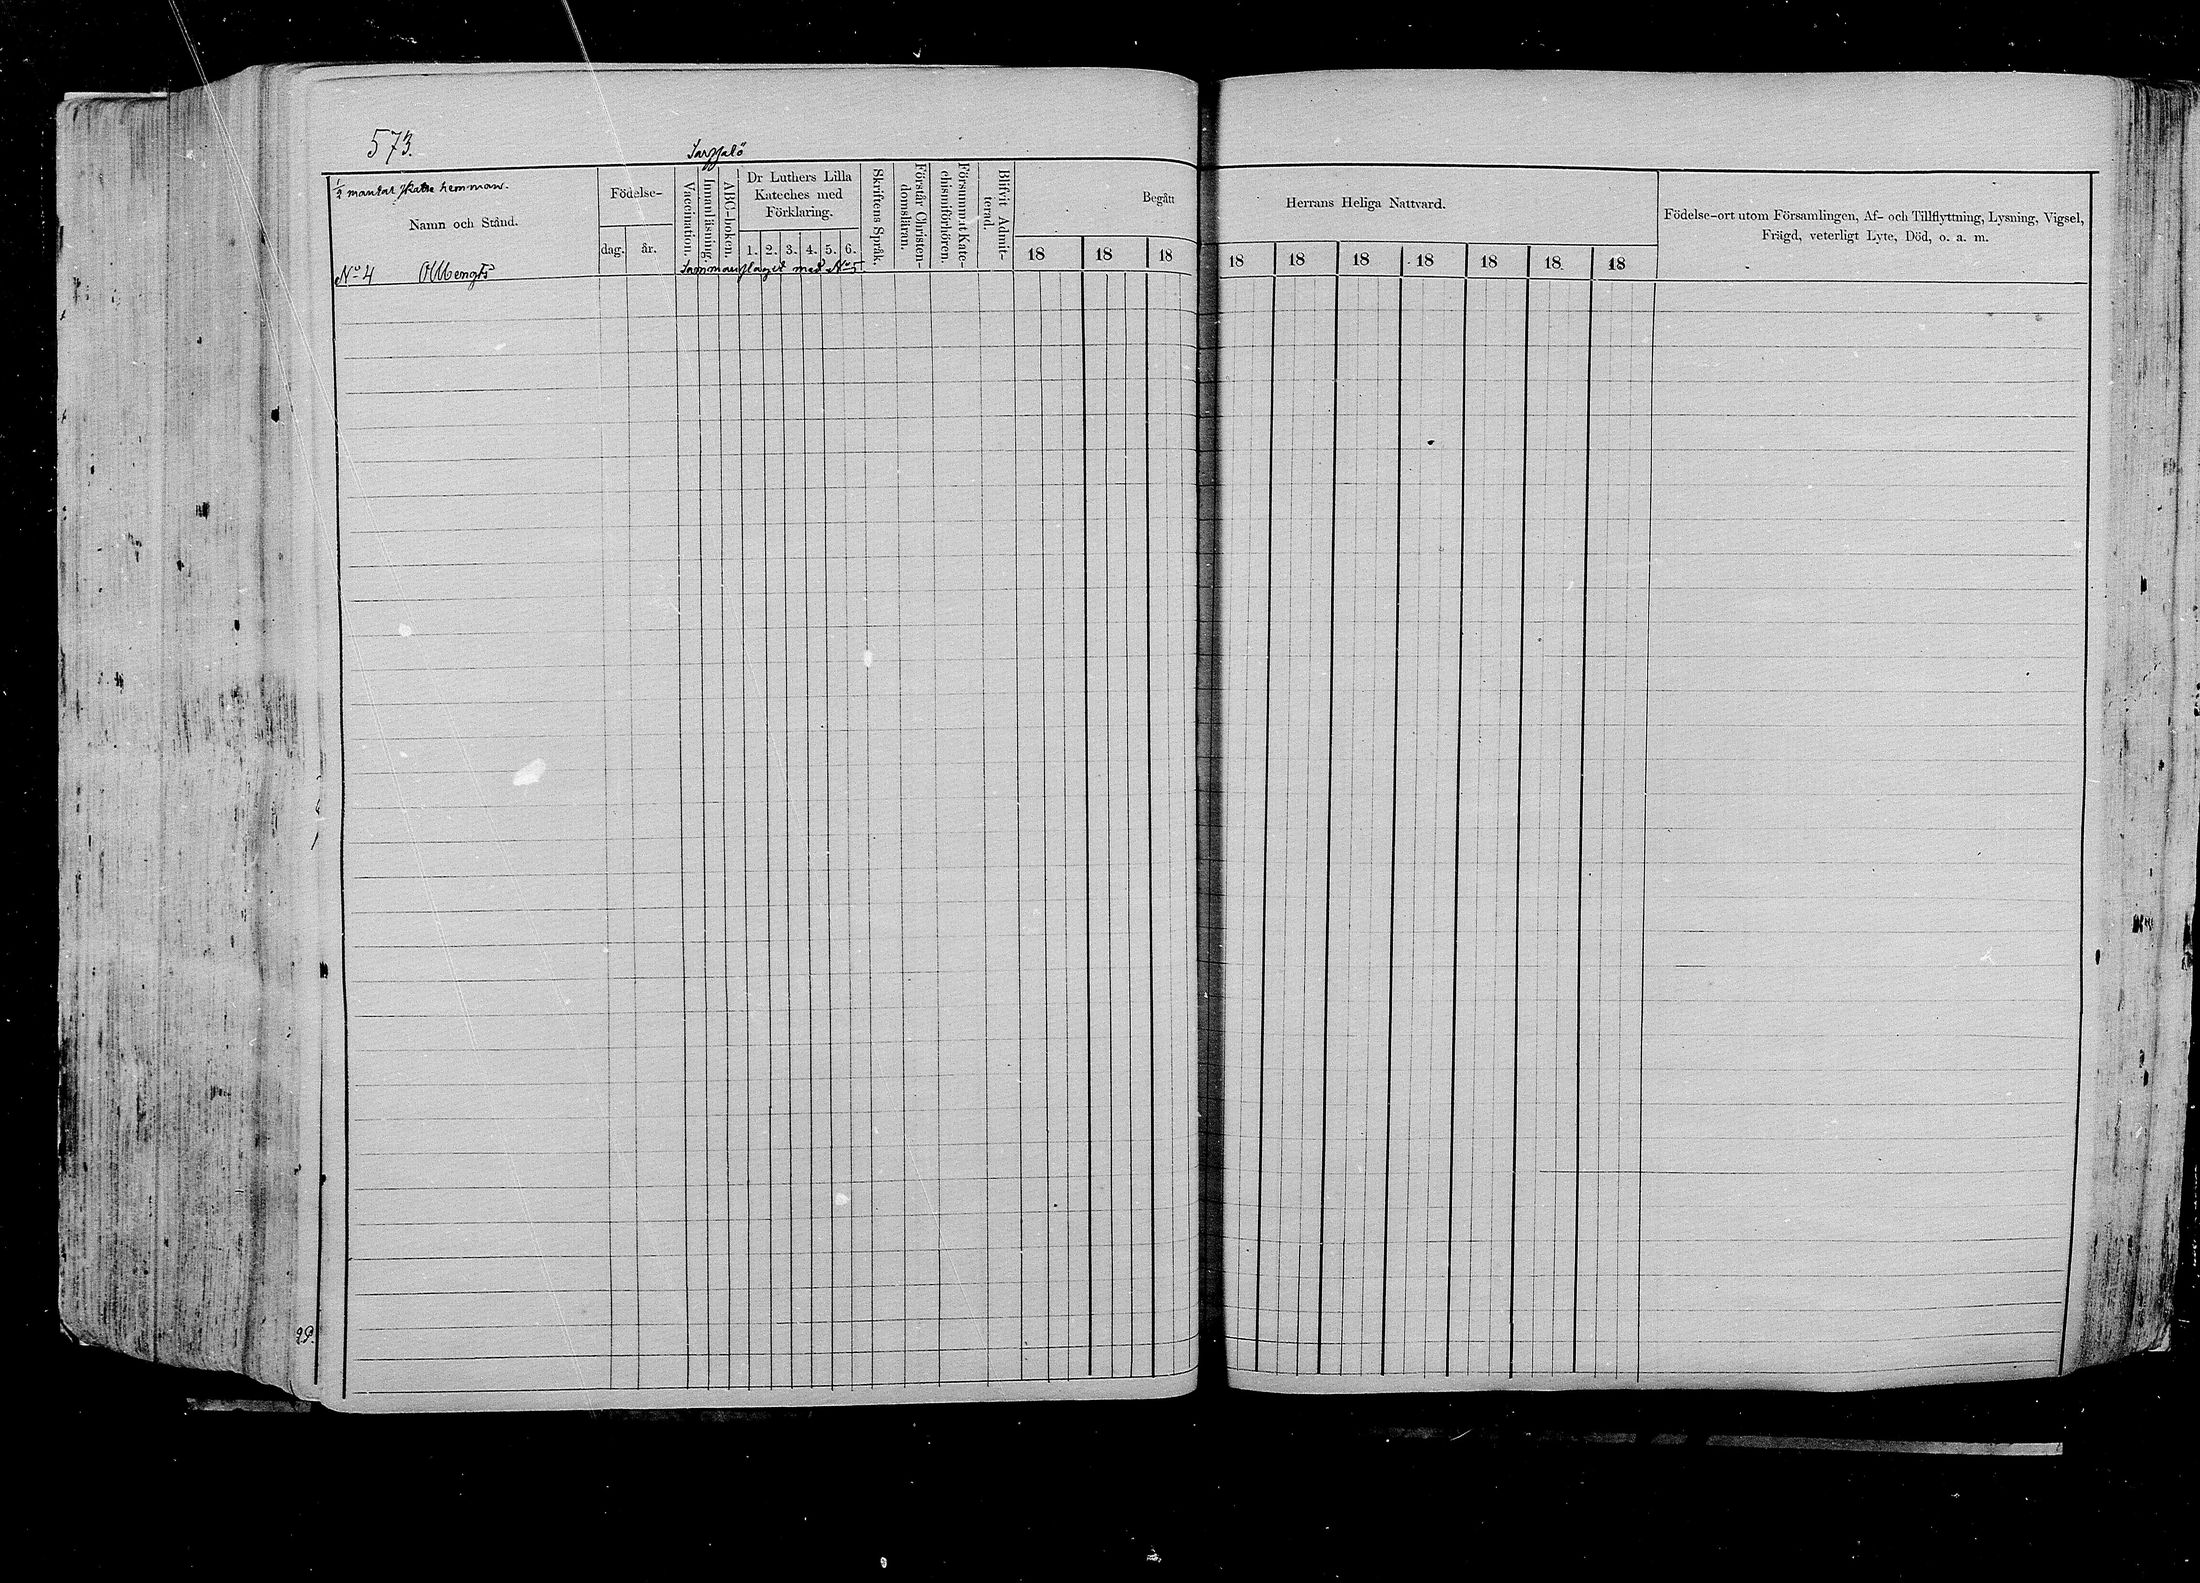 573.
Sarssalö
1/2 mantal skatte hemman.
Namn och Stånd.
Födelse-
dag.
år.
Vaccination.
Innanläsning.
ABC-boken.
Dr Luthers Lilla
Kateches med
Förklaring.
1. 2. 3. 4. 5. 6.
Skriftens Språk.
Förstår Christen-
domsläran.
Försummat Kate-
chismiförhören.
Blifvit Admit-
terad.
Begått
18 18 18
Herrans Heliga Nattvard.
18 18 18 18 18 18 18
Födelse-ort utom Församlingen, Af- och Tillflyttning, Lysning, Vigsel,
Frägd, veterligt Lyte, Död, o. a. m.
No 4 Sammanslaget med No 5
29.